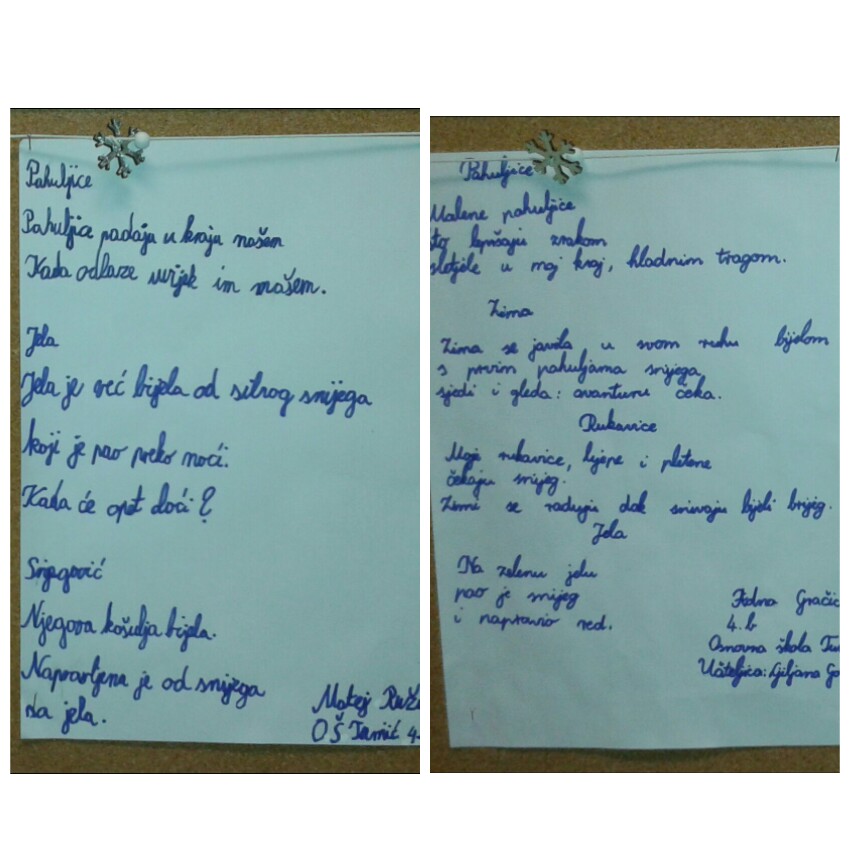 Pahuljice
Pahuljia padaju u kraju našem
Kada odlaze uvijek im mašem.
Jela
Jela je već bijela od sitnog snijega
koji je pao preko noći.
Kada će opet doći?
Snjegović
Njegova košulja bijela.
Napravljena je od snijega
da jela.
Matej
OŠ 4.
Pahuljice
Malene pahuljice
što lepršaju zrakom
sletjele u moj kraj, hladnim tragom.
Zima
Zima se javila u svom ruhu bijelom
s prvim pahuljama snijega,
sjedi i gleda: avanturu čeka.
Rukavice
Moje rukavice, lijepe i pletene
čekaju snijeg.
Zimi se raduju dok snivaju bijeli brijeg.
Jela
Na zelenu jelu
pao je snijeg
i napravio red.
Gračić
4.b
Osnovna škola
Učiteljica: Ljiljana